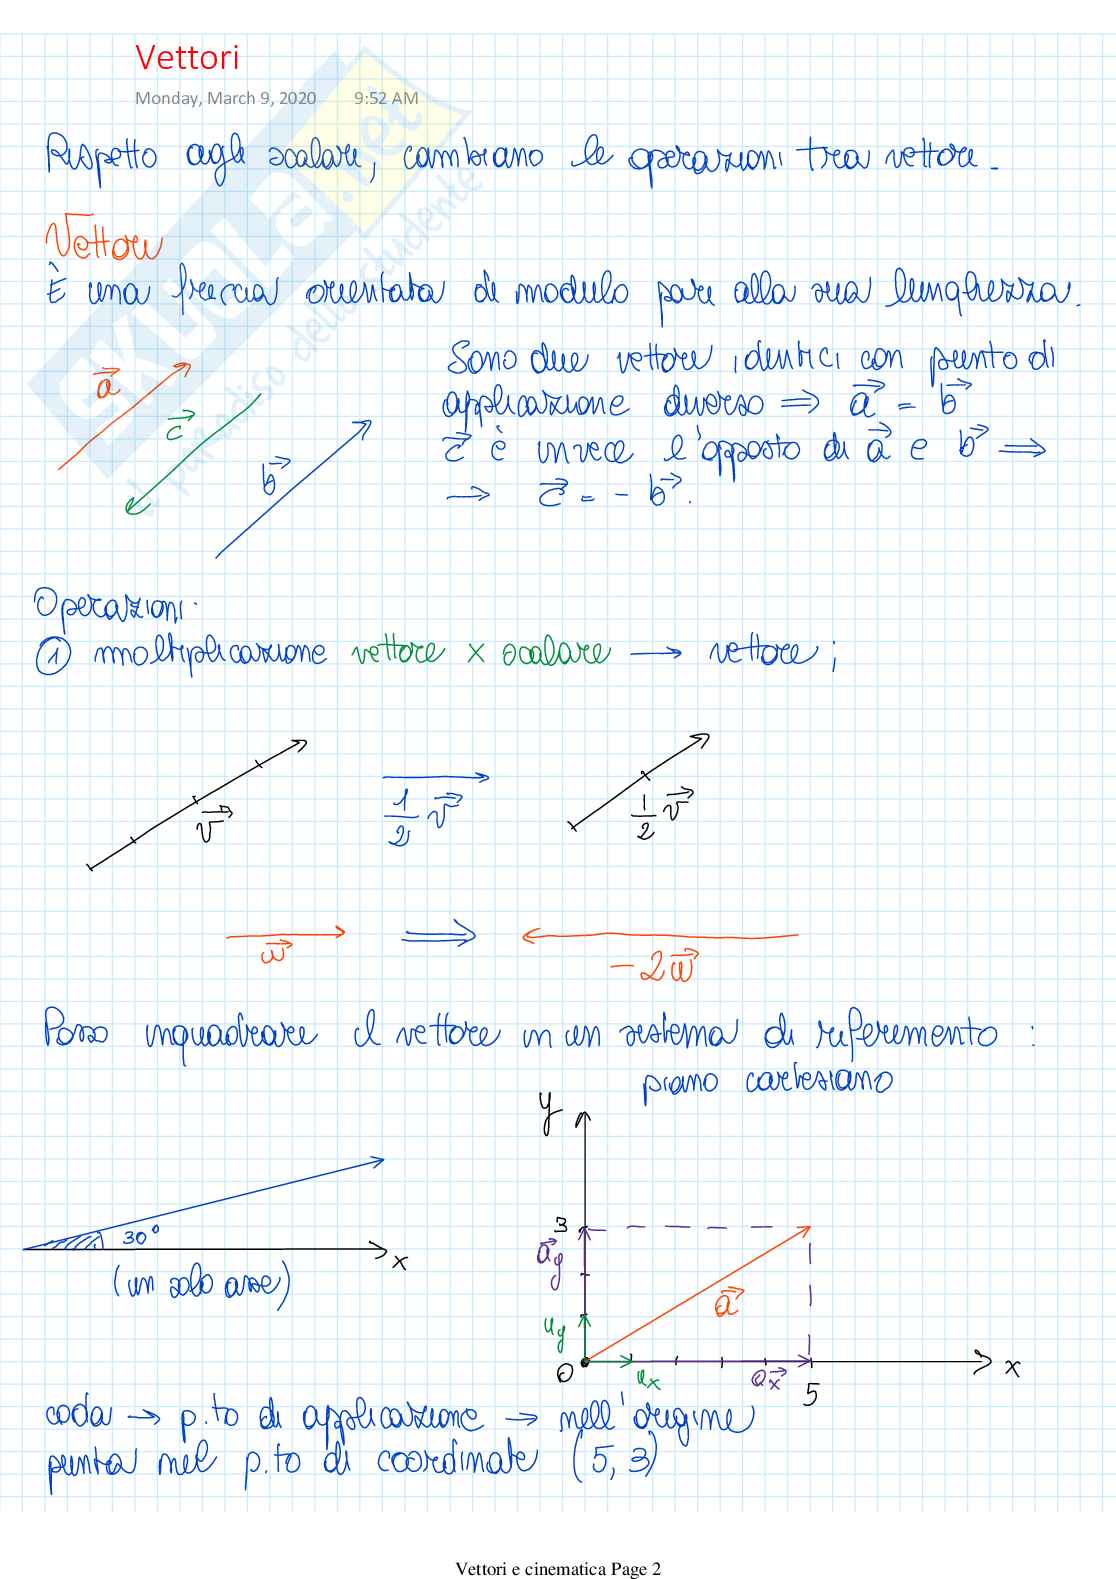 Vettori
Monday, March 9, 2020 9:52 AM
Rispetto agli scalari, cambiano le operazioni tra vettori.
Vettori
È una freccia orientata di modulo pari alla sua lunghezza.
Sono due vettori identici con punto di
applicazione diverso ⇒ a⃗ = b⃗
c⃗ è invece l'opposto di a⃗ e b⃗ ⇒
→ c⃗ = - b⃗.
a⃗
c⃗
b⃗
Operazioni:
① moltiplicazione vettore x scalare → vettore;
v⃗
1/2 v⃗
1/2 v⃗
w⃗ ⇒ -2w⃗
Posso inquadrare il vettore in un sistema di riferimento :
piano cartesiano
30°
x
(un solo asse)
y
3
a⃗y
a⃗
uy
O
ux
a⃗x
5
x
coda → p.to di applicazione → nell'origine
punta nel p.to di coordinate (5, 3)
Vettori e cinematica Page 2
SKUOLA.net
il paradiso dello studente